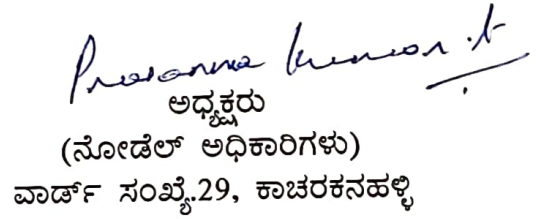 Prasanna Kumar .A
ಅಧ್ಯಕ್ಷರು
(ನೋಡೆಲ್ ಅಧಿಕಾರಿಗಳು)
ವಾರ್ಡ್ ಸಂಖ್ಯೆ.29, ಕಾಚರಕನಹಳ್ಳಿ